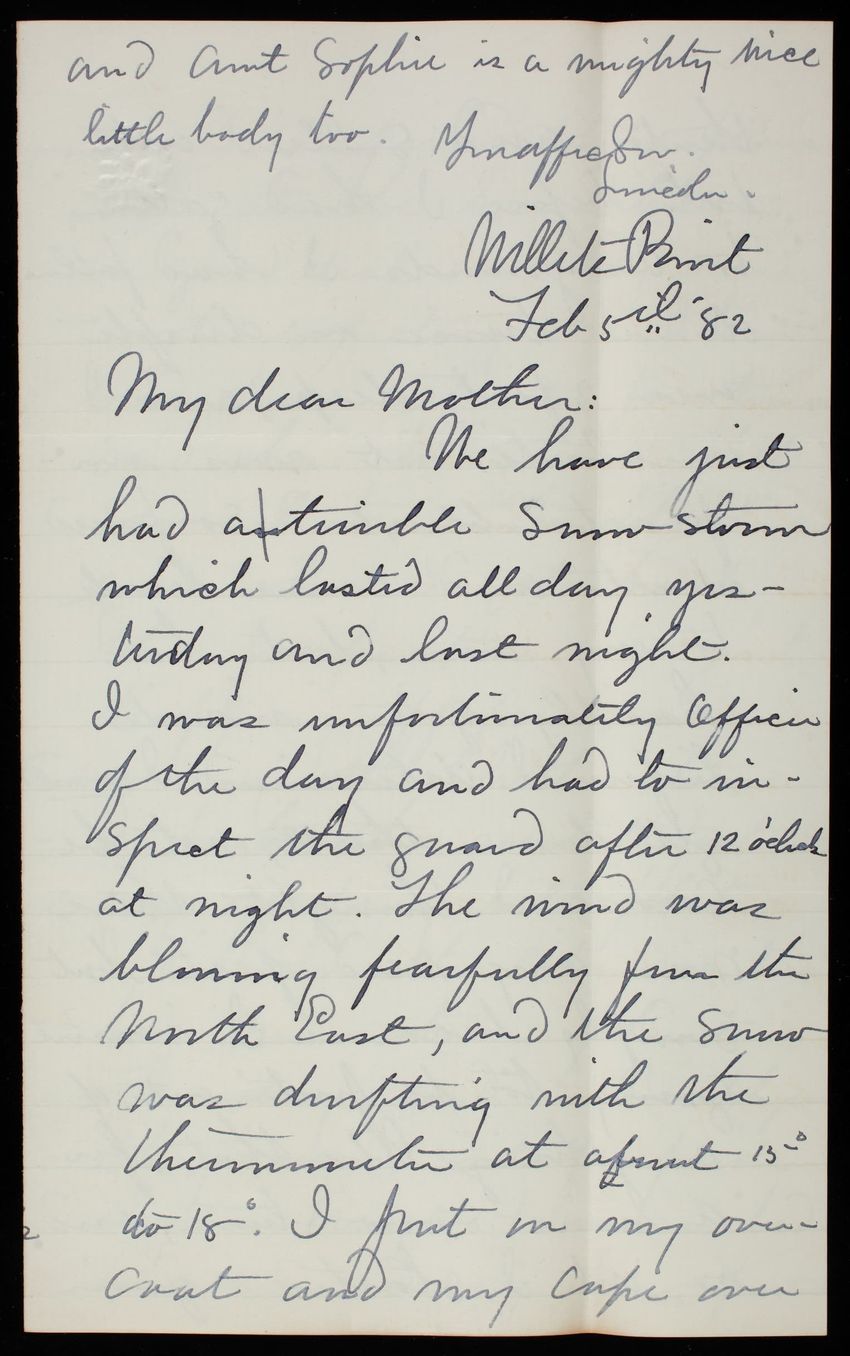 and Aunt Sophie is a mighty nice
little body too. Your aff. Son.
Lincoln.
Willets Point
Feb 5th "82
My dear Mother:
We have just
had a terrible Snow-storm
which lasted all day yes-
terday and last night.
I was unfortunately Officer
of the day and had to in-
spect the guard after 12 o'clock
at night. The wind was
blowing fearfully from the
North East, and the Snow
was drifting with the
thermometer at about 15°
to 18°. I put on my over-
coat and my cape over